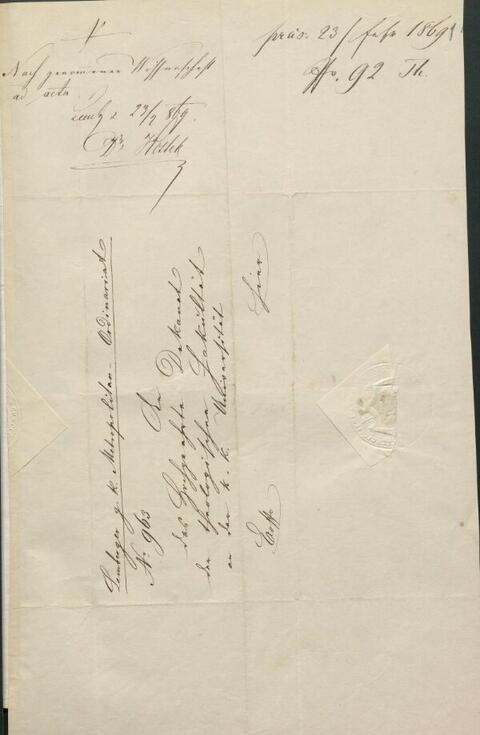 präs. 23/ Febr 1869
92 Th.
Nach genommener Wissenschaft
ad acta
23/2 869.
Dr
Lemberger g. k. Metropolitan-Ordinariat
No 963
An
das Hochgeehrte Dekanat
der theologischen Fakultät
an der k. k. Universität
hier